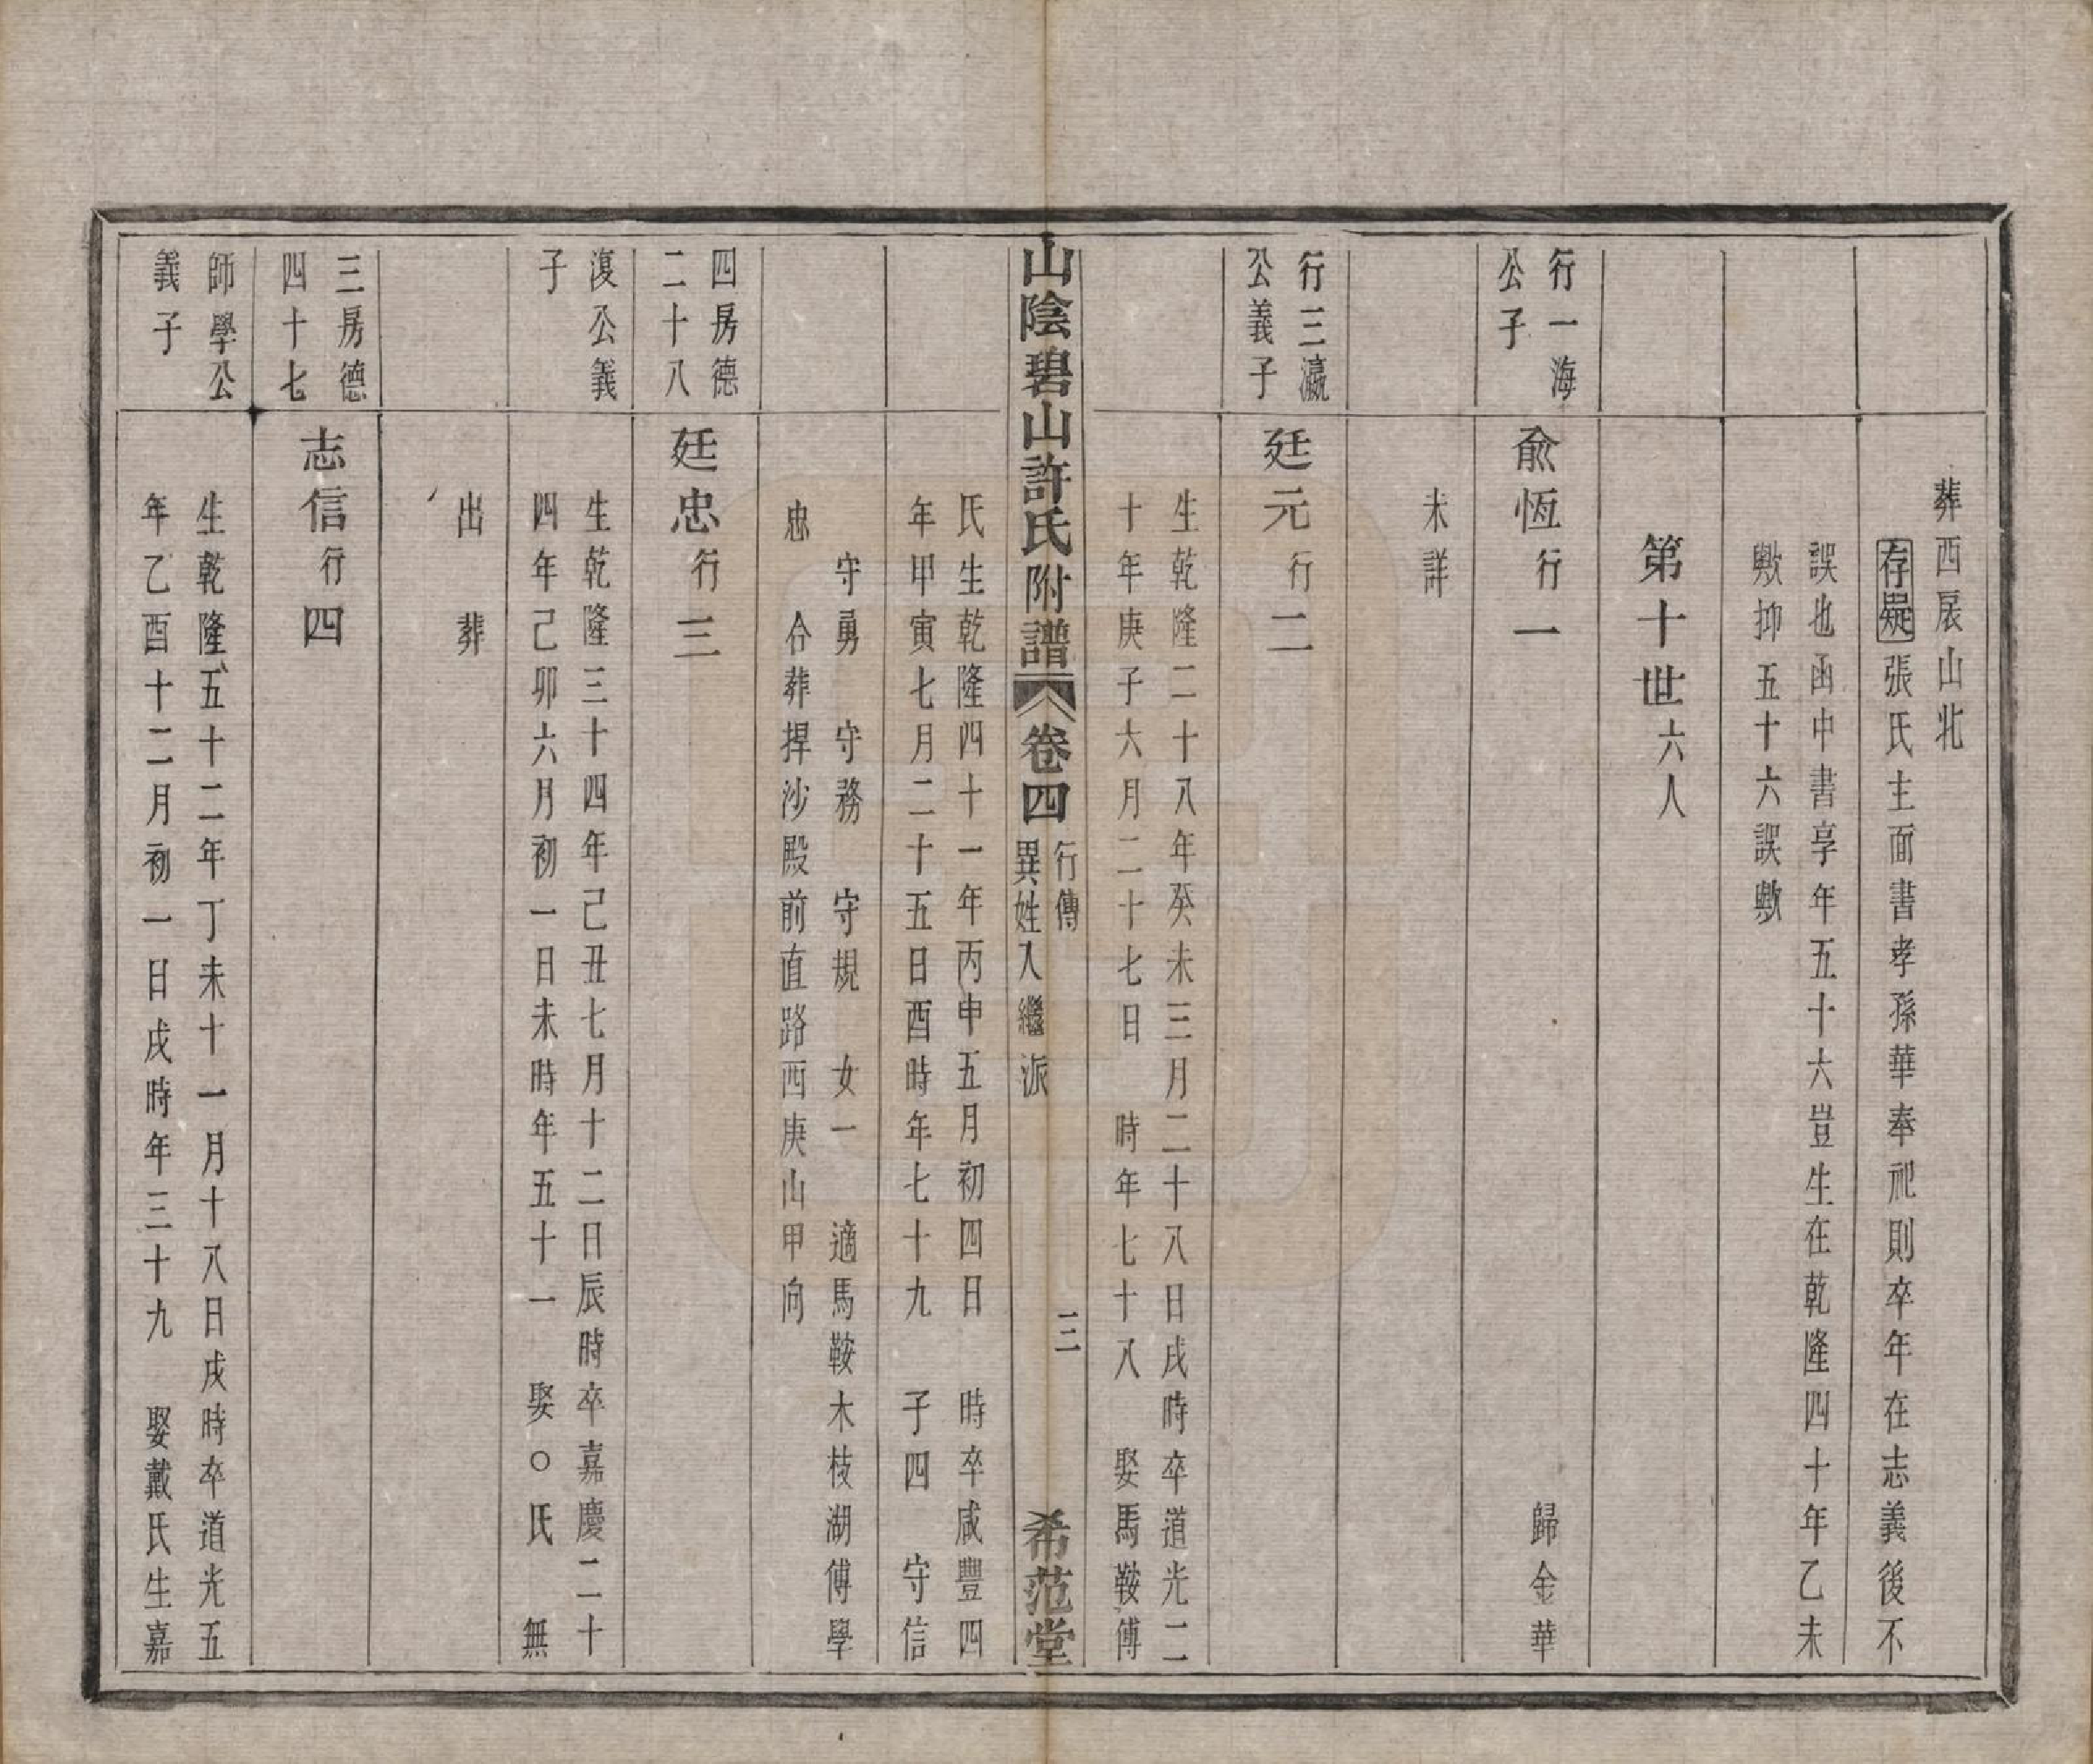 葬西扆山北
存疑張氏主面書孝孫華奉祀則卒年在志義後不
誤也函中書享年五十六豈生在乾隆四十年乙未
歟抑五十六誤歟
第十世六人
行一海
公子
俞恆行一
歸金華
未詳
行三瀛
公義子
廷元行二
生乾隆二十八年癸未三月二十八日戌時卒道光二
十年庚子六月二十七日 時年七十八 娶馬鞍傅
山陰碧山許氏附譜 卷四 行傳
異姓入繼派
三
希范堂
氏生乾隆四十一年丙申五月初四日 時卒咸豐四
年甲寅七月二十五日酉時年七十九 子四 守信
守勇 守務 守規 女一 適馬鞍木枝湖傅學
忠 合葬捍沙殿前直路西庚山甲向
四房德
二十八
廷忠行三
復公義
子
生乾隆三十四年己丑七月十二日辰時卒嘉慶二十
四年己卯六月初一日未時年五十一 娶○氏 無
出 葬
三房德
四十七
志信行四
師學公
義子
生乾隆五十二年丁未十一月十八日戌時卒道光五
年乙酉十二月初一日戌時年三十九 娶戴氏生嘉